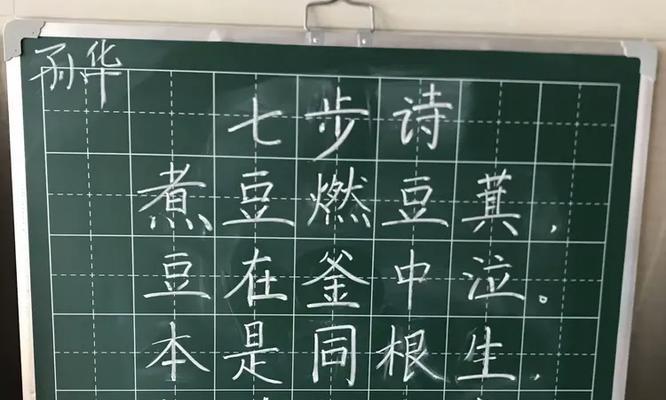 孙华
七步诗
煮豆燃豆萁，
豆在釜中泣。
本是同根生，